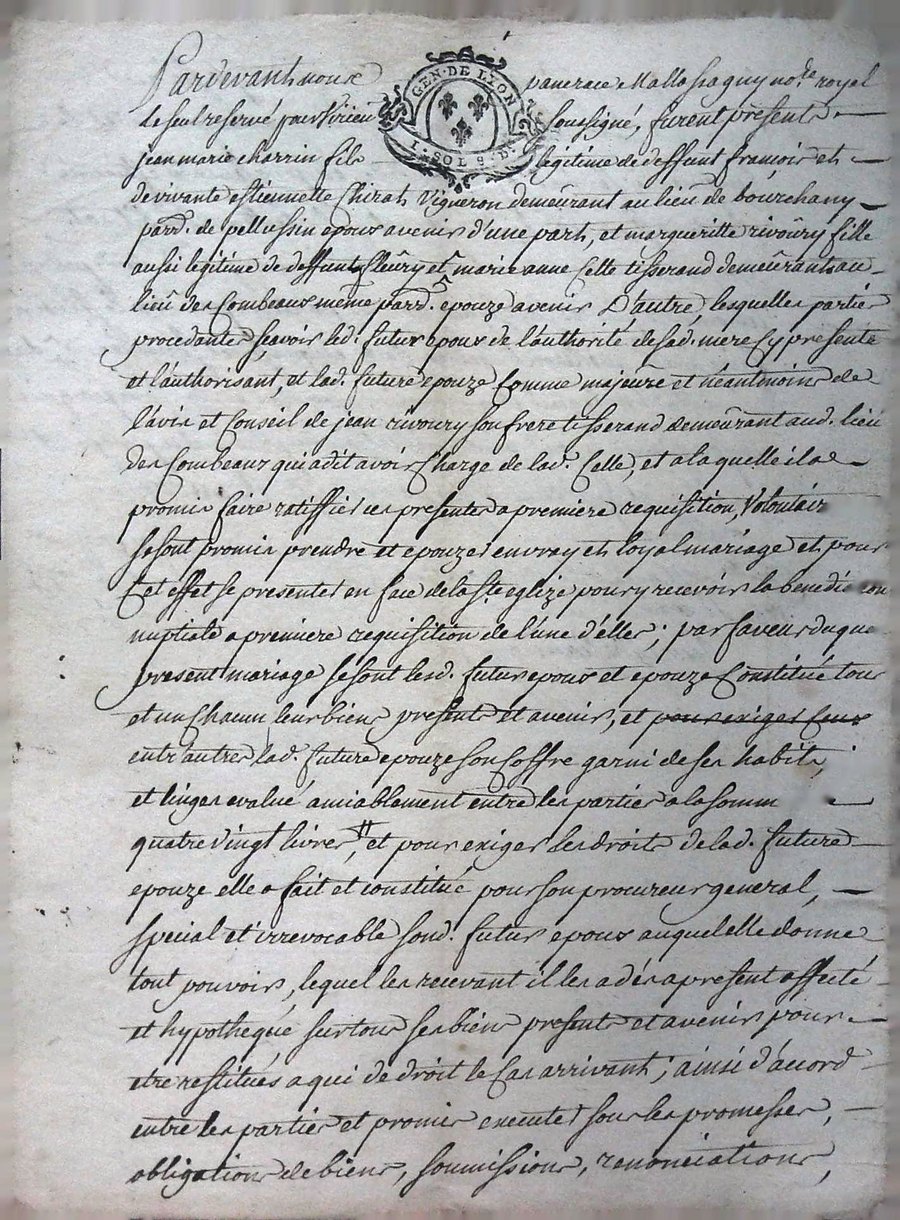 Pardevant nous pancrace Mallassagny no.re royal
GEN. DE LYON
I. SOL 8. D.
le seul reservé pour Virieu soussigné, furent présents
jean marie charrin fils légitime de deffunt françois et
de vivante estiennette Chirat Vigneron demeurant au lieu de bourchany
parr. de pellussin epoux avenir d'une part, et margueritte rivoûry fille
aussi legitime de deffunt fleûry et marie anne Celle tisserand demeûrants au
lieû des Combeaux même parr. epouze avenir D'autre, lesquelles parties
procedantes sçavoir led. futur epoux de l'authorité de sad. mere Cy presente
et l'authorisant, et lad. future epouze Comme majeure et néantmoins de
l'avis et Conseil de jean rivoury son frere tisserand demeûrant aud. lieu
des Combeaux qui a dit avoir Charge de lad. Celle, et a laquelle il a
promis faire ratiffier ces presentes a premiere requisition, Volontair
se sont promis prendre et epouzer en vray et loyal mariage et pour
Cet effet se presenter en face de la S.te eglize pour y recevoir la benediction
nuptiale a premiere requisition de l'une d'elles; par faveur duque
present mariage se sont lesd. futur epoux et epouze Constitué tous
et un Chacun leur biens presents et avenir, et pour exiger Ceux
entr'autres lad. future epouze son Coffre garni de ses habits,
et linges evalué amiablement entre les parties a la somm
quatre vingt livres ₶, et pour exiger les droits de lad. future
epouze elle a fait et constitué pour son procureur general,
special et irrevocable sond. futur epoux auquel elle donne
tout pouvoir, lequel les recevant il les a dès apresent affecté
et hypothequé sur tous ses biens presents et avenir pour
etre restitués a qui de droit le Cas arrivant; ainsi d'accord
entre les parties et promis executer sous les promesses,
obligations de biens, soumissions, renonciations,